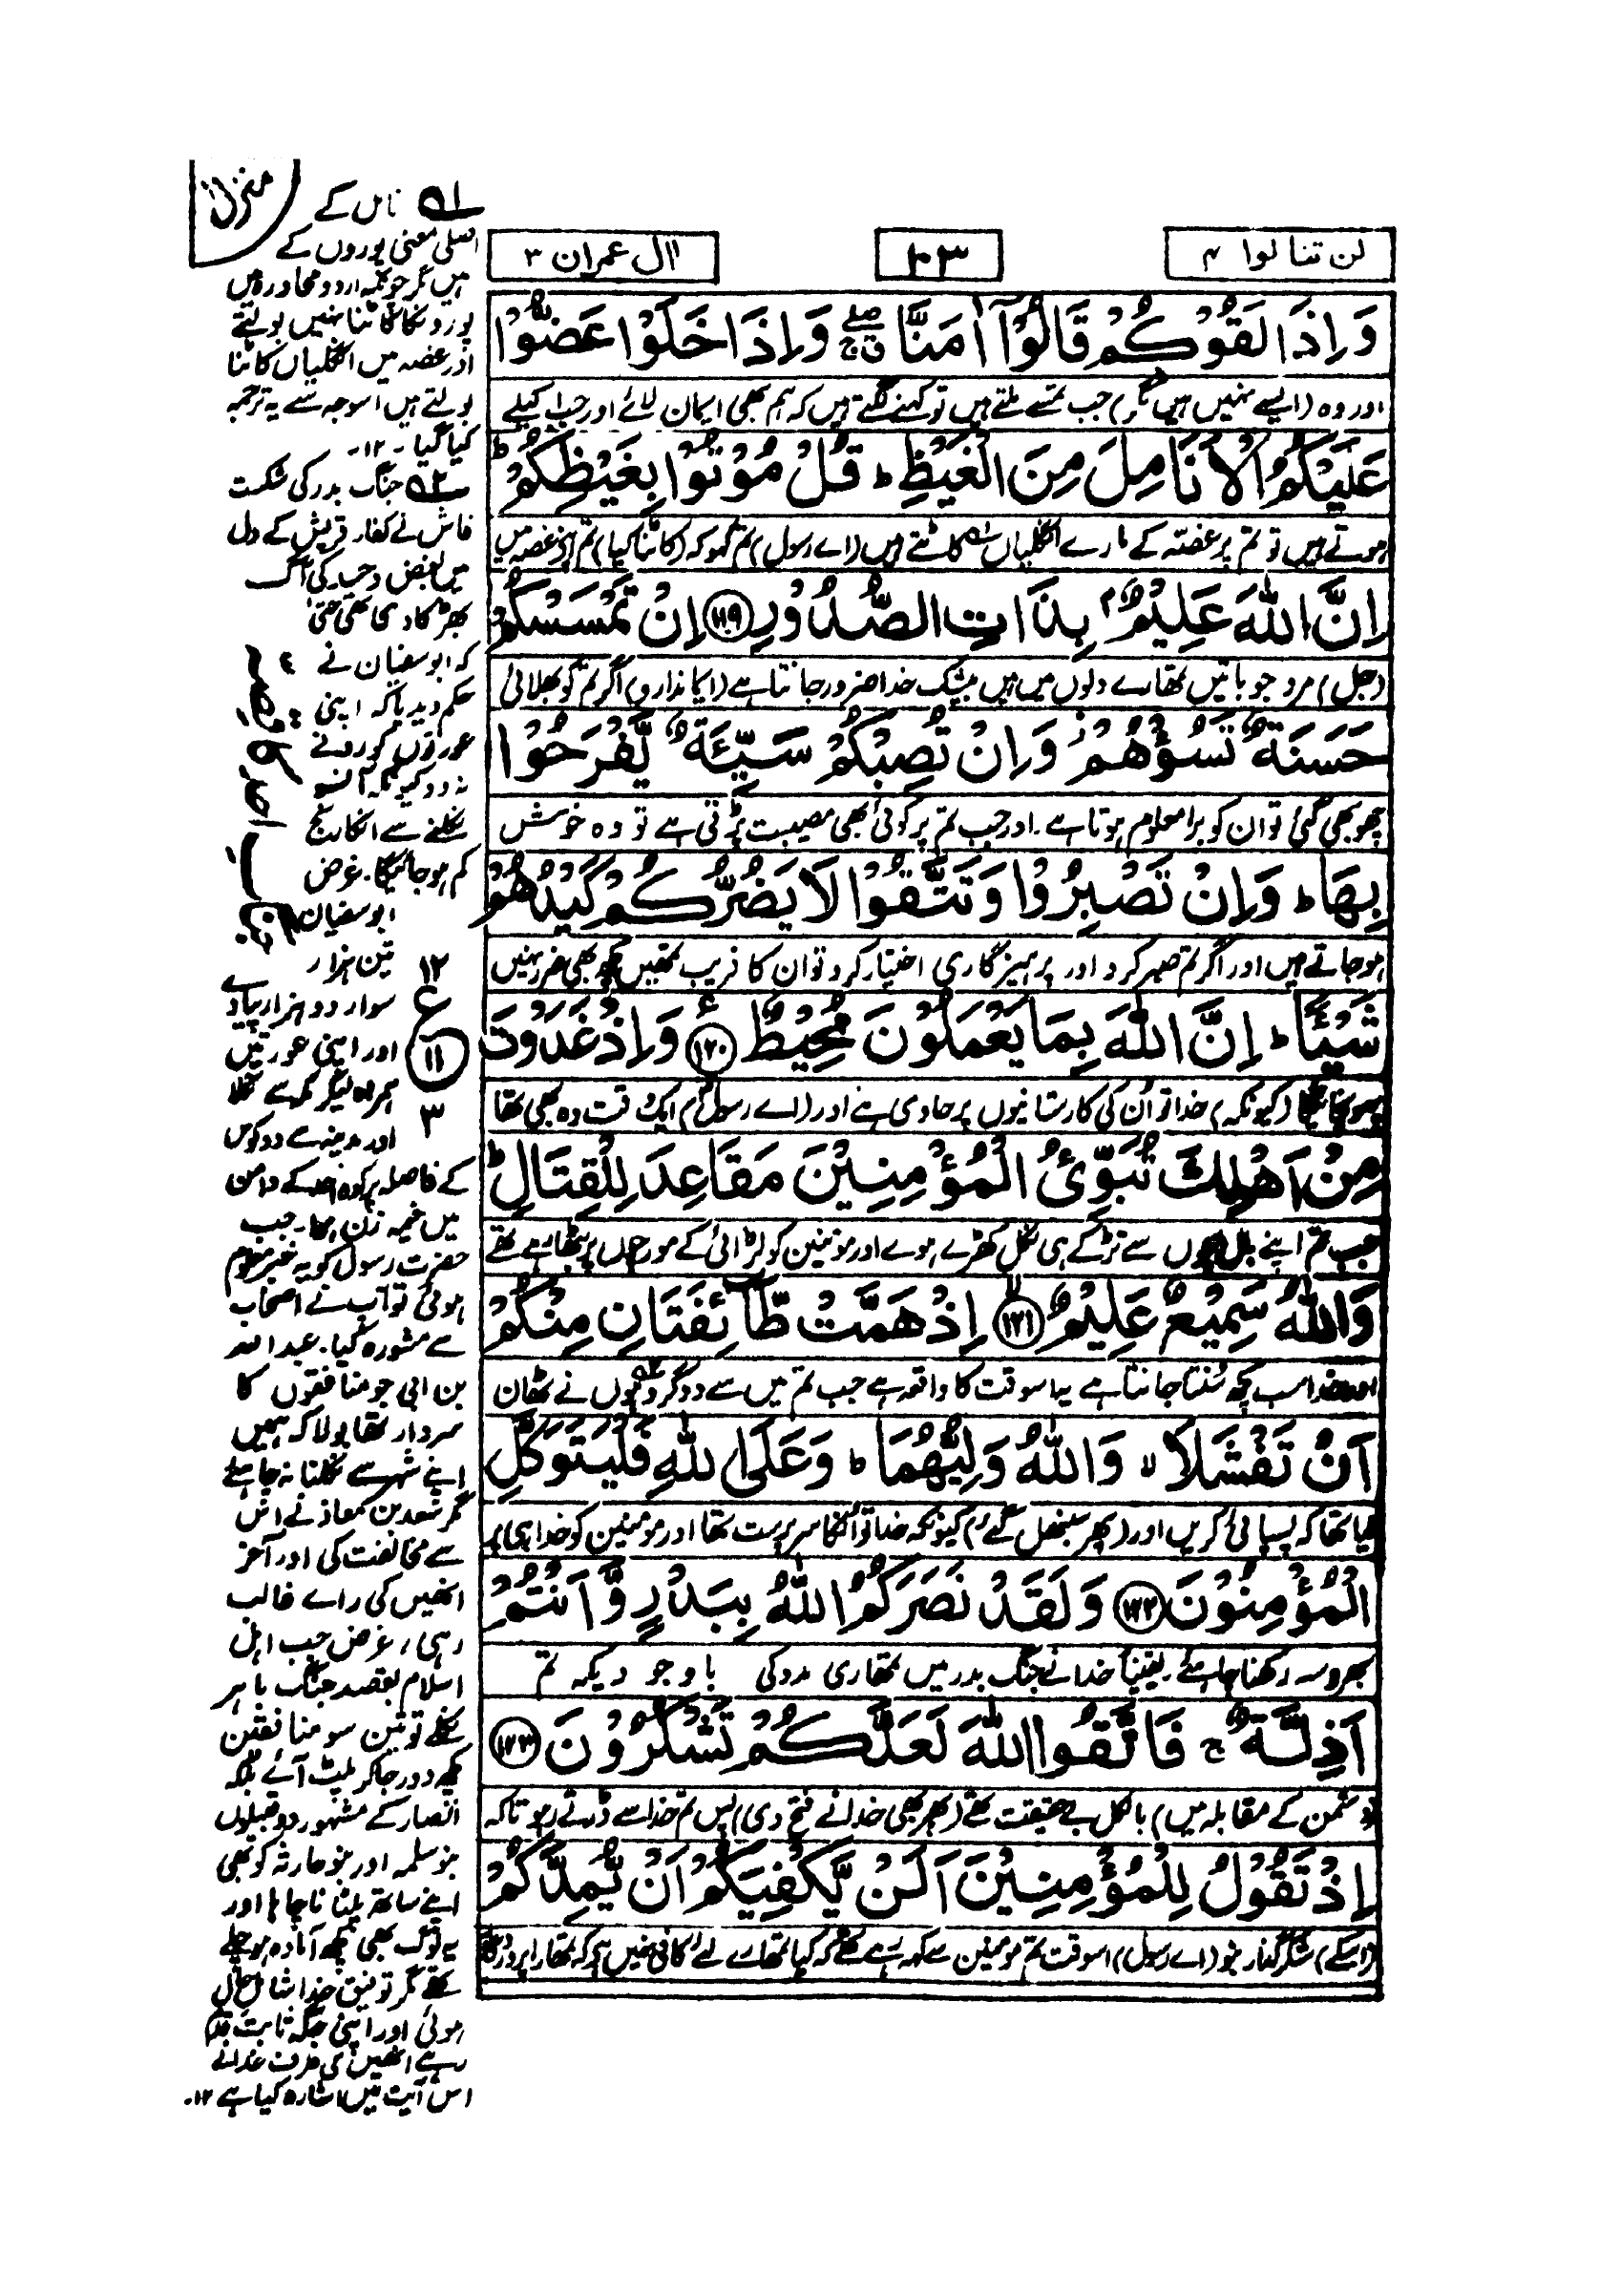 لن تنالوا ۴
۱۰۳
اٰل عمران ۳
وَاِذَا لَقُوْكُمْ قَالُوْٓا اٰمَنَّا ۖۚ وَاِذَا خَلَوْا عَضُّوْا
اور وہ (ایسے نہیں ہیں مگر) جب تمسے ملتے ہیں تو کہنے لگتے ہیں کہ ہم بھی ایمان لائے اور جب اکیلے
عَلَيْكُمُ الْاَنَامِلَ مِنَ الْغَيْظِ ؕ قُلْ مُوْتُوْا بِغَيْظِكُمْ ؕ
ہوتے ہیں تو تم پر غصّہ کے مارے انگلیاں کاٹتے ہیں (اے رسول) تم کہو کہ (کاٹنا کیا) تم اپنے غصہ میں
اِنَّ اللّٰهَ عَلِيْمٌۢ بِذَاتِ الصُّدُوْرِ ﴿۱۱۹﴾ اِنْ تَمْسَسْكُمْ
(جل) مرو جو باتیں تمھارے دلوں میں ہیں بیشک خدا ضرور جانتا ہے (ایماندارو) اگر تم کو بھلائی
حَسَنَةٌ تَسُؤْهُمْ ۫ وَاِنْ تُصِبْكُمْ سَيِّئَةٌ يَّفْرَحُوْا
چھو بھی گئی تو ان کو برا معلوم ہوتا ہے۔ اور جب تم پر کوئی بھی مصیبت پڑتی ہے تو وہ خوش
بِهَا ؕ وَاِنْ تَصْبِرُوْا وَتَتَّقُوْا لَا يَضُرُّكُمْ كَيْدُهُمْ
ہو جاتے ہیں اور اگر تم صبر کرو اور پرہیز گاری اختیار کرو تو ان کا فریب تمھیں کچھ بھی ضرر نہیں
شَيْـًٔا ؕ اِنَّ اللّٰهَ بِمَا يَعْمَلُوْنَ مُحِيْطٌ ﴿۱۲۰﴾ وَاِذْ غَدَوْتَ
پہونچائیگا (کیونکہ) خدا تو اُن کی کارستانیوں پر حاوی ہے اور (اے رسول) ایک وقت وہ بھی تھا
مِنْ اَهْلِكَ تُبَوِّئُ الْمُؤْمِنِيْنَ مَقَاعِدَ لِلْقِتَالِ ؕ
جب تم اپنے بال بچوں سے تڑکے ہی نکل کھڑے ہوے اور مومنین کو لڑائی کے مورچوں پر بٹھا رہے تھے
وَاللّٰهُ سَمِيْعٌ عَلِيْمٌ ﴿۱۲۱﴾ اِذْ هَمَّتْ طَّآئِفَتٰنِ مِنْكُمْ
اور خدا سب کچھ سُنتا جانتا ہے یہ اسوقت کا واقعہ ہے جب تم میں سے دو گروہوں نے ٹھان
اَنْ تَفْشَلَا ۙ وَاللّٰهُ وَلِيُّهُمَا ؕ وَعَلَى اللّٰهِ فَلْيَتَوَكَّلِ
لیا تھا کہ پسپائی کریں اور (پھر سنبھل گئے) کیونکہ خدا تو انکا سرپرست تھا اور مومنین کو خدا ہی پر
الْمُؤْمِنُوْنَ ﴿۱۲۲﴾ وَلَقَدْ نَصَرَكُمُ اللّٰهُ بِبَدْرٍ وَّاَنْتُمْ
بھروسہ رکھنا چاہئے۔ یقیناً خدا نے جنگ بدر میں تمھاری مدد کی باوجودیکہ تم
اَذِلَّةٌ ۚ فَاتَّقُوا اللّٰهَ لَعَلَّكُمْ تَشْكُرُوْنَ ﴿۱۲۳﴾
(دشمن کے مقابلہ میں) بالکل بے حقیقت تھے (پھر بھی خدا نے فتح دی) پس تم خدا سے ڈرتے رہو تاکہ
اِذْ تَقُوْلُ لِلْمُؤْمِنِيْنَ اَلَنْ يَّكْفِيَكُمْ اَنْ يُّمِدَّكُمْ
(اسکے) شکر گذار بنو (اے رسول) اسوقت تم مومنین سے کہہ رہے تھے کہ کیا تمھارے لئے کافی نہیں ہے کہ تمھارا پروردگار
منزل ۱
۱ ناس کے
اصلی معنی پوروں کے
ہیں مگر چونکہ اردو محاورہ میں
پوروں کا کاٹنا نہیں بولتے
اور غصہ میں انگلیاں کاٹنا
بولتے ہیں اسوجہ سے یہ ترجمہ
کیا گیا۔ ۱۲۔
۲ جنگ بدر کی شکست
فاش نے کفار قریش کے دل
میں بغض و حسد کی آگ
بھڑکا دی تھی حتیٰ
کہ ابو سفیان نے
حکم دیدیا کہ اپنی
عورتوں کو رونے
نہ دو کیونکہ آنسو
نکلنے سے انکا رنج
کم ہو جائیگا۔ غرض
ابو سفیان
تین ہزار
سوار دو ہزار پیادے
اور اپنی عورتیں
ہمراہ لیکر مکہ سے نکلا
اور مدینہ سے دو کوس
کے فاصلہ پر کوہ احد کے دامن
میں خیمہ زن ہوا۔ جب
حضرت رسول کو یہ خبر معلوم
ہوئی تو آپ نے اصحاب
سے مشورہ کیا۔ عبد اللہ
بن ابی جو منافقوں کا
سردار تھا بولا کہ ہمیں
اپنے شہر سے نکلنا نہ چاہئے
مگر سعد بن معاذ نے اس
سے مخالفت کی اور آخر
انھیں کی رائے غالب
رہی، غرض جب اہل
اسلام بقصد جنگ باہر
نکلے تو تین سو منافقین
کچھ دور جا کر پلٹ آئے بلکہ
انصار کے مشہور دو قبیلوں
بنو سلمہ اور بنو حارثہ کو بھی
اپنے ساتھ پلٹانا چاہا اور
یہ لوگ بھی کچھ آمادہ ہو چلے
تھے مگر توفیق خدا شامل حال
ہوئی اور اپنی جگہ ثابت قدم
رہے انھیں کی طرف خدا نے
اس آیت میں اشارہ کیا ہے ۱۲۔
۱۲
ع
۱۱
۳